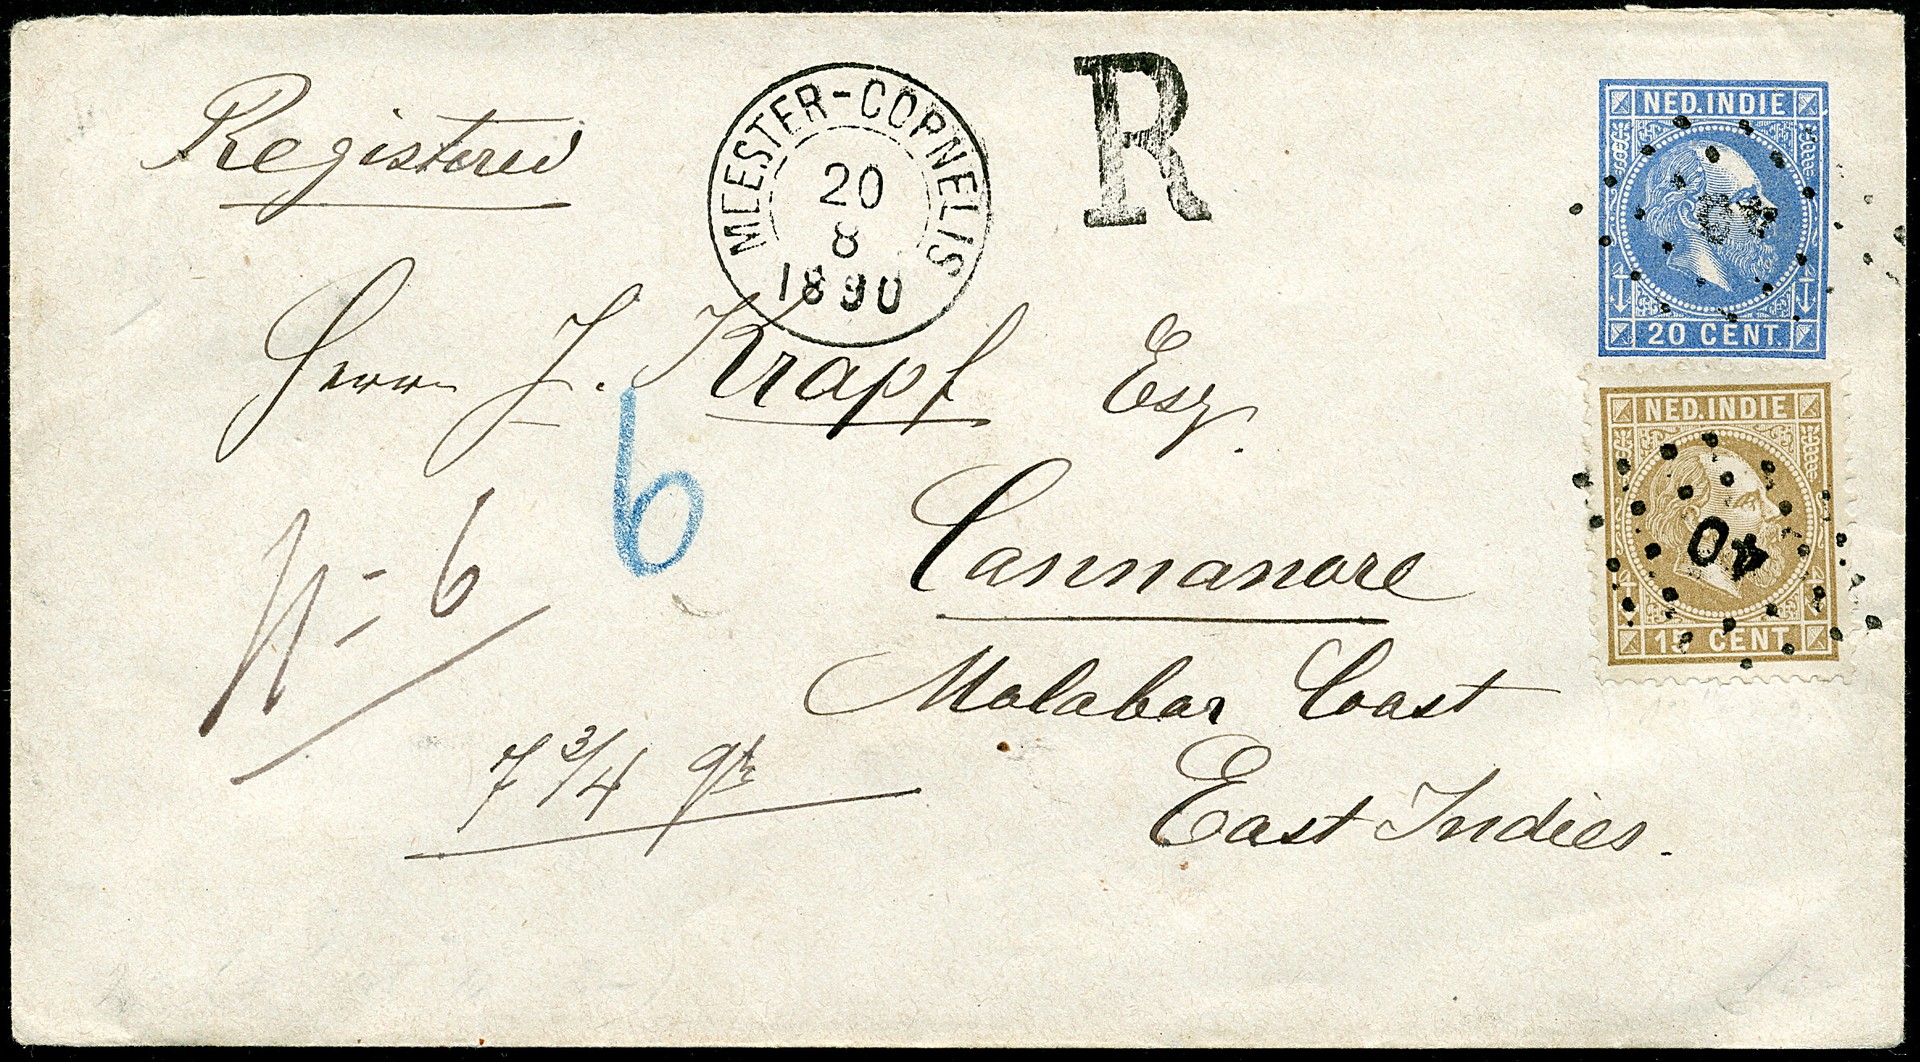 Registered
MEESTER-CORNELIS
20
8
1890
R
NED. INDIE
20 CENT.
NED. INDIE
15 CENT.
40
Herrn J. Krapf Esq.
Cannanore
Malabar Coast
East Indies.
N= 6
6
7 3/4